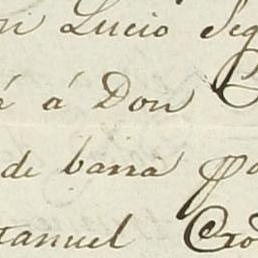 n Lucio Seg
é á Don
de barra p
anuel Cro